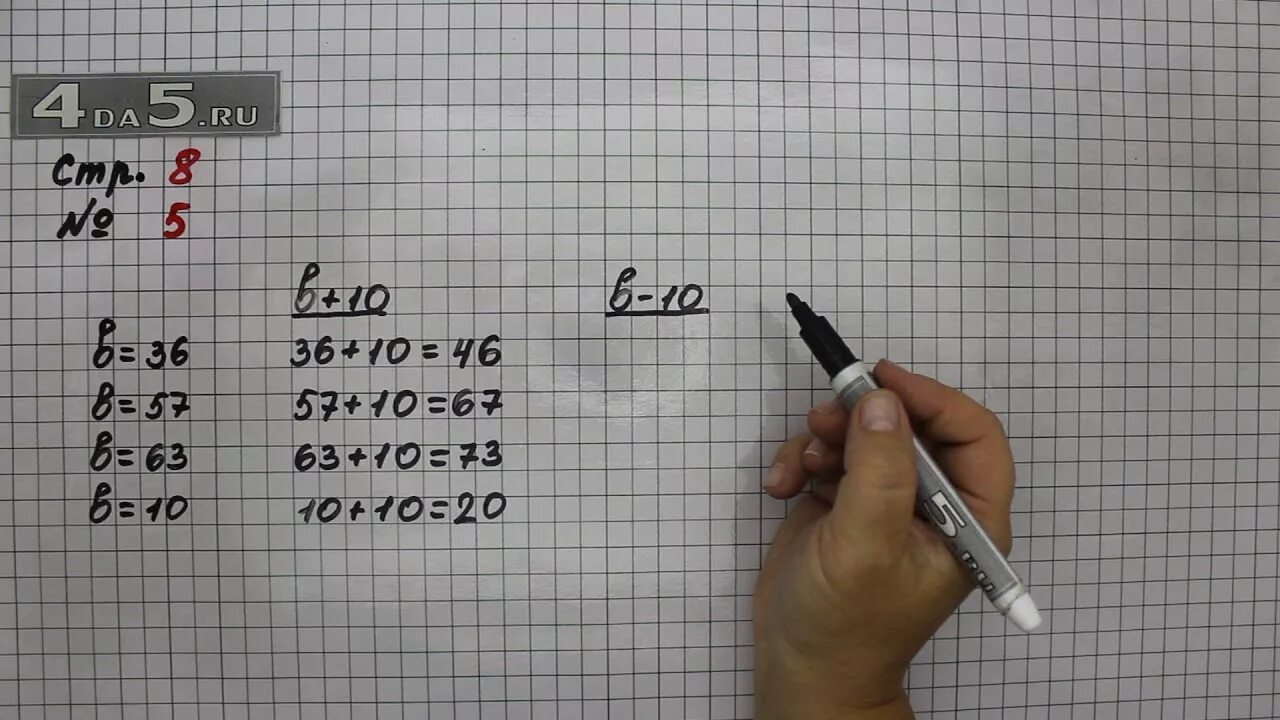 4DA5.RU
Стр. 8
№ 5
в+10 в-10
в=36 36+10=46
в=57 57+10=67
в=63 63+10=73
в=10 10+10=20
5.RU